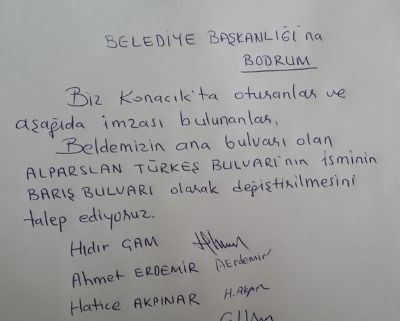 BELEDİYE BAŞKANLIĞI'na
BODRUM
Biz Konacık'ta oturanlar ve
aşağıda imzası bulunanlar,
Beldemizin ana bulvarı olan
ALPARSLAN TÜRKEŞ BULVARI'nın isminin
BARIŞ BULVARI olarak değiştirilmesini
talep ediyoruz.
Hıdır GAM
Ahmet ERDEMİR AErdemir
Hatice AKPINAR H.Akpın